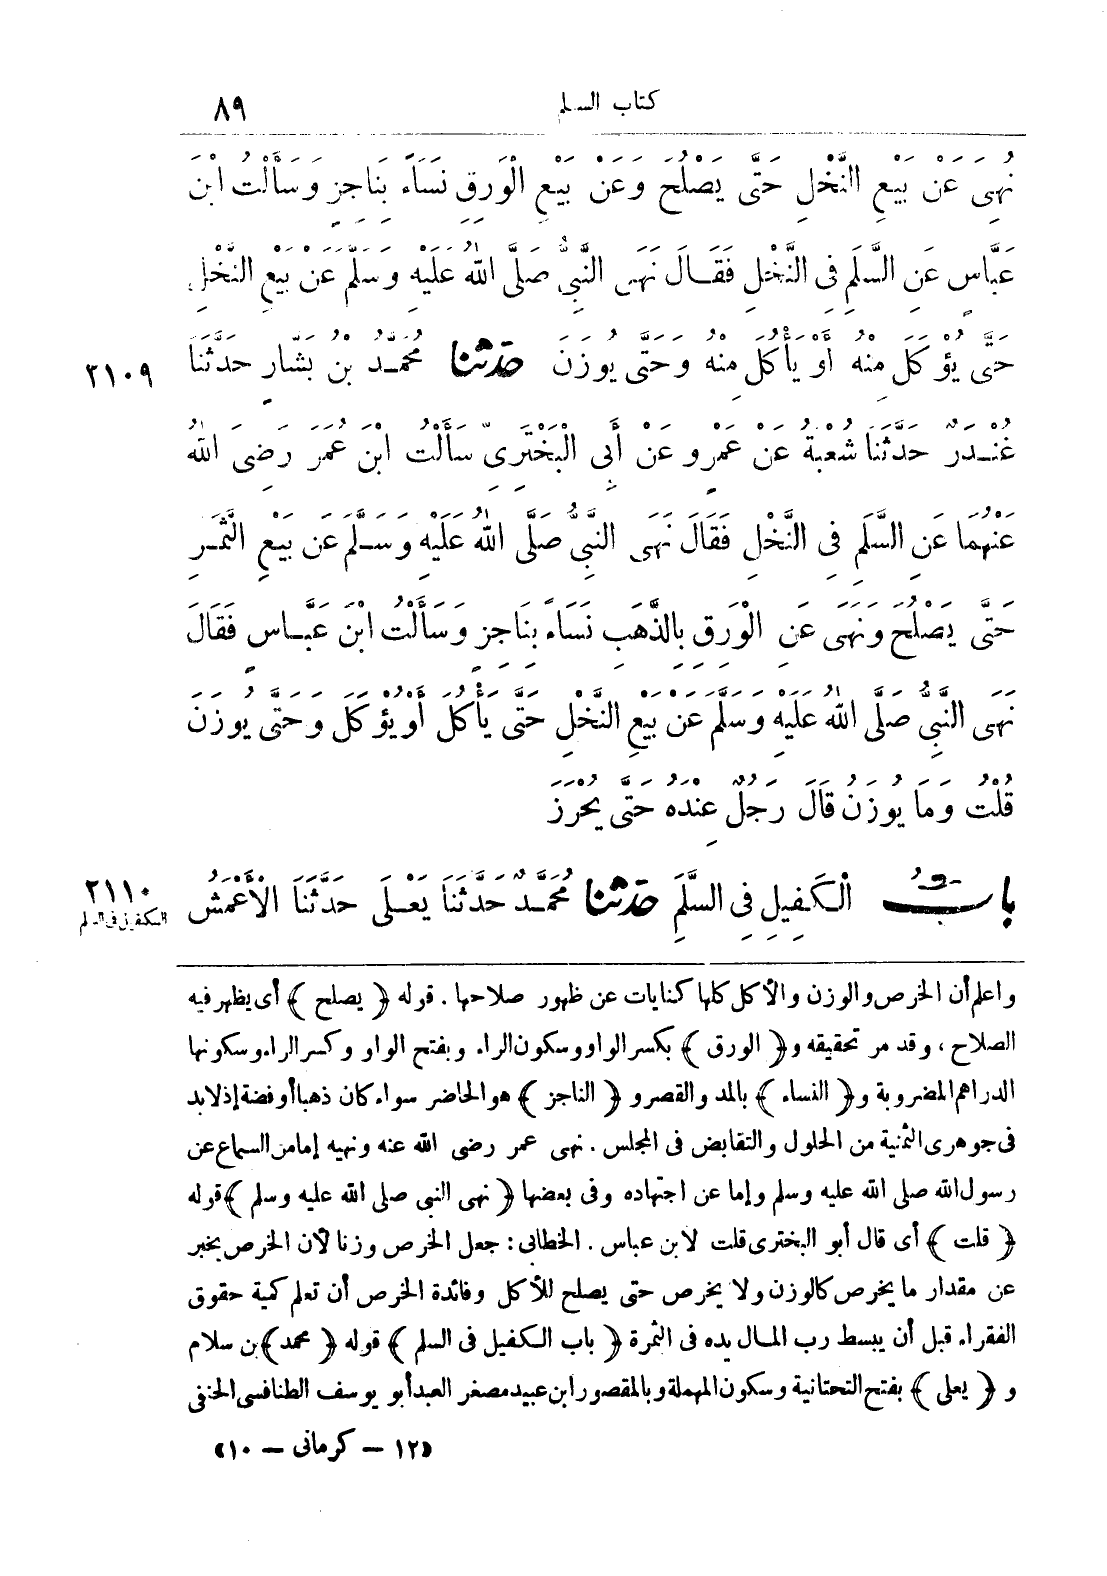 كتاب السلم ٨٩
نُهِىَ عَنْ بَيْعِ النَّخْلِ حَتَّى يَصْلُحَ وَعَنْ بَيْعِ الْوَرِقِ نَسَاءً بِنَاجِزٍ وَسَأَلْتُ ابْنَ
عَبَّاسٍ عَنِ السَّلَمِ فِى النَّخْلِ فَقَالَ نَهَى النَّبِىُّ صَلَّى اللهُ عَلَيْهِ وَسَلَّمَ عَنْ بَيْعِ النَّخْلِ
حَتَّى يُؤْكَلَ مِنْهُ أَوْ يَأْكُلَ مِنْهُ وَحَتَّى يُوزَنَ حَدَّثَنَا مُحَمَّدُ بْنُ بَشَّارٍ حَدَّثَنَا ٢١٠٩
غُنْدَرٌ حَدَّثَنَا شُعْبَةُ عَنْ عَمْرٍو عَنْ أَبِى الْبَخْتَرِىِّ سَأَلْتُ ابْنَ عُمَرَ رَضِىَ اللهُ
عَنْهُمَا عَنِ السَّلَمِ فِى النَّخْلِ فَقَالَ نَهَى النَّبِىُّ صَلَّى اللهُ عَلَيْهِ وَسَلَّمَ عَنْ بَيْعِ الثَّمَرِ
حَتَّى يَصْلُحَ وَنَهَى عَنِ الْوَرِقِ بِالذَّهَبِ نَسَاءً بِنَاجِزٍ وَسَأَلْتُ ابْنَ عَبَّاسٍ فَقَالَ
نَهَى النَّبِىُّ صَلَّى اللهُ عَلَيْهِ وَسَلَّمَ عَنْ بَيْعِ النَّخْلِ حَتَّى يَأْكُلَ أَوْ يُؤْكَلَ وَحَتَّى يُوزَنَ
قُلْتُ وَمَا يُوزَنُ قَالَ رَجُلٌ عِنْدَهُ حَتَّى يُحْرَزَ
بابُ الْكَفِيلِ فِى السَّلَمِ حَدَّثَنَا مُحَمَّدٌ حَدَّثَنَا يَعْلَى حَدَّثَنَا الْأَعْمَشُ ٢١١٠
الكفيل فى السلم
واعلم أن الخرص والوزن والأكل كلها كنايات عن ظهور صلاحها . قوله ﴿ يصلح ﴾ أى يظهر فيه
الصلاح ، وقد مر تحقيقه و ﴿ الورق ﴾ بكسر الواو وسكون الراء وبفتح الواو وكسر الراء وسكونها
الدراهم المضروبة و ﴿ النساء ﴾ بالمد والقصر و ﴿ الناجز ﴾ هو الحاضر سواء كان ذهبا أو فضة إذ لا بد
فى جوهرى الثمنية من الحلول والتقابض فى المجلس . نهى عمر رضى الله عنه ونهيه إما من السماع عن
رسول الله صلى الله عليه وسلم وإما عن اجتهاده وفى بعضها ﴿ نهى النبى صلى الله عليه وسلم ﴾ قوله
﴿ قلت ﴾ أى قال أبو البخترى قلت لابن عباس . الخطابى : جعل الخرص وزنا لأن الخرص يخبر
عن مقدار ما يخرص كالوزن ولا يخرص حتى يصلح للأكل وفائدة الخرص أن تعلم كمية حقوق
الفقراء قبل أن يبسط رب المال يده فى الثمرة ﴿ باب الكفيل فى السلم ﴾ قوله ﴿ محمد ﴾ بن سلام
و ﴿ يعلى ﴾ بفتح التحتانية وسكون المهملة وبالمقصور ابن عبيد مصغر العبد أبو يوسف الطنافسى الحنفى
«١٢ – كرمانى – ١٠»